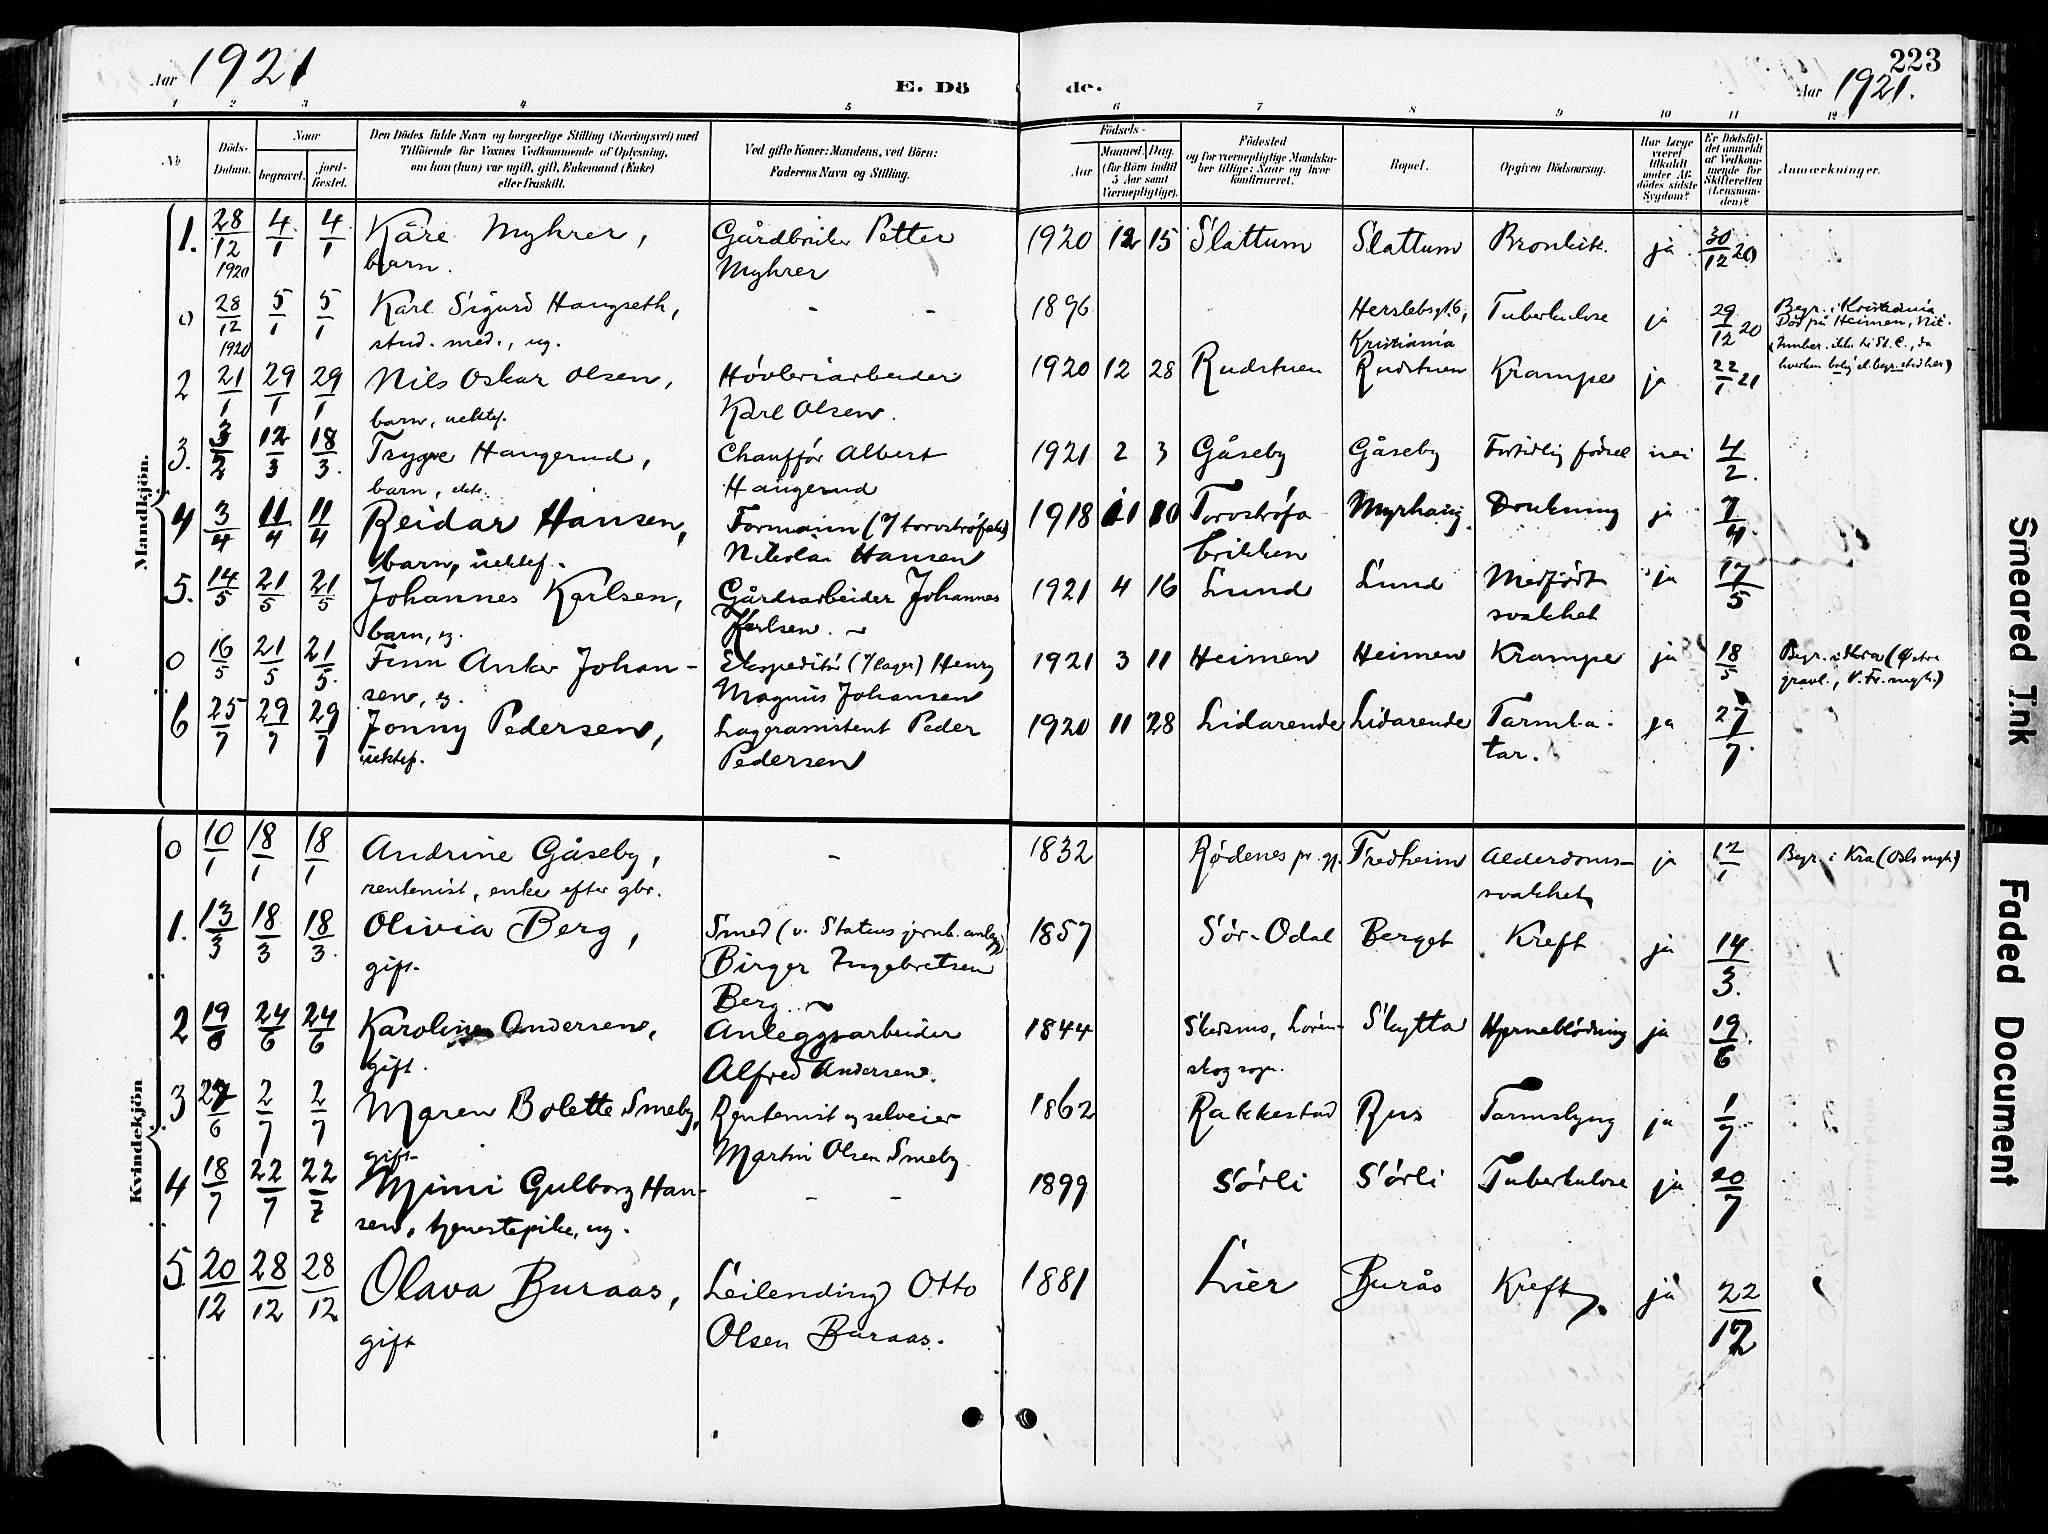 Aar 1921
E. Döde.
223
Aar 1921.
1 2 3 4 5 6 7 8 9 10 11 12
No
Döds-Datum.
Naar
begravet.
jord-fæstet.
Den Dödes fulde Navn og borgerlige Stilling (Næringsvei) med
Tilföiende for Voxnes Vedkommende af Oplysning,
om han (hun) var ugift, gift, Enkemand (Enke)
eller fraskilt.
Ved gifte Koner: Mandens, ved Börn:
Faderens Navn og Stilling.
Födsels-
Aar
Maaned. Dag.
(for Börn indtil
5 Aar samt
Værnepligtige).
Födested
og for værnepligtige Mandska-
ber tillige: Naar og hvor
konfirmeret.
Bopæl.
Opgiven Dödsaarsag.
Har Læge
været
tilkaldt
under Af-
dödes sidste
Sygdom?
Er Dödsfal-
det anmeldt
af Vedkom-
mende for
Skifteretten
(Lensman-
den)?
Anmærkninger.
Mandkjön.
1. 28/12 1920 4/1 4/1 Kåre Myhrer, Gårdbruker Petter 1920 12 15 Slattum Slattum Bronkit. ja 30/12 20
barn. Myhrer
0 28/12 1920 5/1 5/1 Karl Sigurd Haugseth, - - 1896 Herslebsgt. 6, Tuberkulose ja 29/12 20 Begr. i Kristiania
stud. med., ug. Kristiania Död på Heimen, Nit.
2 21/1 29/1 29/1 Nils Oskar Olsen, Høvleriarbeider 1920 12 28 Rudstuen Rudstuen Krampe ja 22/1 21
barn, uektef. Karl Olsen.
3. 3/2 12/3 18/3. Trygve Haugerud, Chauffór Albert 1921 2 3 Gåseby Gåseby Fortidlig födsel nei 4/2.
barn, ekte. Haugerud
4 3/4 11/4 11/4 Reidar Hansen, Formann 1918 11 10 Torvströfa Myrhaug Drukning ja 7/4
barn, uektef. Nikolai Hansen brikken
5. 14/5 21/5 21/5 Johannes Karlsen, Gårdsarbeider Johannes 1921 4 16 Lund Lund Medfödt ja 17/5
barn, eg. Karlsen. svakhet
0 16/5 21/5 21/5. Finn Anker Johan- Ekspeditör (i lager) Henry 1921 3 11 Heimen Heimen Krampe ja 18/5 Begr. i Kra (Östre
sen, eg. Magnus Johansen gravl., V. Fr. mgh.)
6 25/7 29/7 29/7 Jonny Pedersen, Lagerassistent Peder 1920 11 28 Lidarende Lidarende Tarmka- ja 27/7.
uektef. Pedersen tar.
Kvindekjön
0 10/1 18/1 18/1 Andrine Gåseby, - 1832 Rödenes pr. gj. Fredheim Alderdoms- ja 12/1 Begr. i Kra (Oslo mgh.)
rentenist, enke efter gbr. svakhet
1. 13/3 18/3 18/3. Olivia Berg, Smed (v. Statens jernb. anlegg) 1857 Sör-Odal Berget Kreft ja 14/3.
gift. Birger Ingebretsen
Berg.
2 19/6 24/6 24/6 Karoline Andersen, Anleggsarbeider 1844 Skedsmo, Lören- Skytta Hjerneblödning ja 19/6.
gift. Alfred Andersen. skog sogn.
3 27/6 2/7 2/7 Maren Bolette Smeby, Rentenist og selveier 1862 Rakkestad Rus Tarmslyng ja 1/7
gift. Martin Olsen Smeby.
4 18/7 22/7 22/7 Mimi Gulborg Han- - - 1899 Sörli Sörli Tuberkulose ja 20/7
sen, tjenestepike, ug.
5 20/12 28/12 28/12 Olava Buraas, Leilending Otto 1881 Lier Burås Kreft. ja 22/12
gift Olsen Buraas.
Smeared Ink
Faded Document